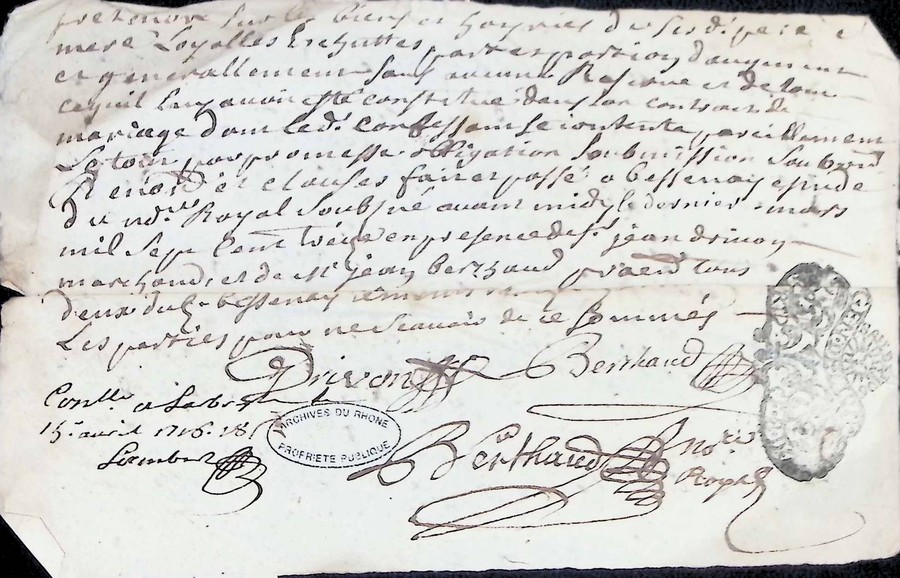 pretendre sur les biens et hoyries de sesd. pere et
mere Loyalles Eschuttes part et portion d'augment
et generallement sans aucune Reserve et de tout
ce quil luy a voir esté constitué dans son contract de
mariage dont led. Confessant se contente pareillement
Le tout par promesse obligation soubmission
et clauses fait et passé a bessenay estude
du no.re Royal soubsné avant midy le dernier mars
mil sept Cent en presence de s.r jean drivon
marchand, et de M.e jean berthaud tous
deux dud. bessenay
Les parties pour ne scavoir de ce sommés
Drivon Berthaud
Conlle a Labr
15e avril 1716
Lambert
ARCHIVES DU RHONE
PROPRIETE PUBLIQUE
Berthaud no.re
Royal